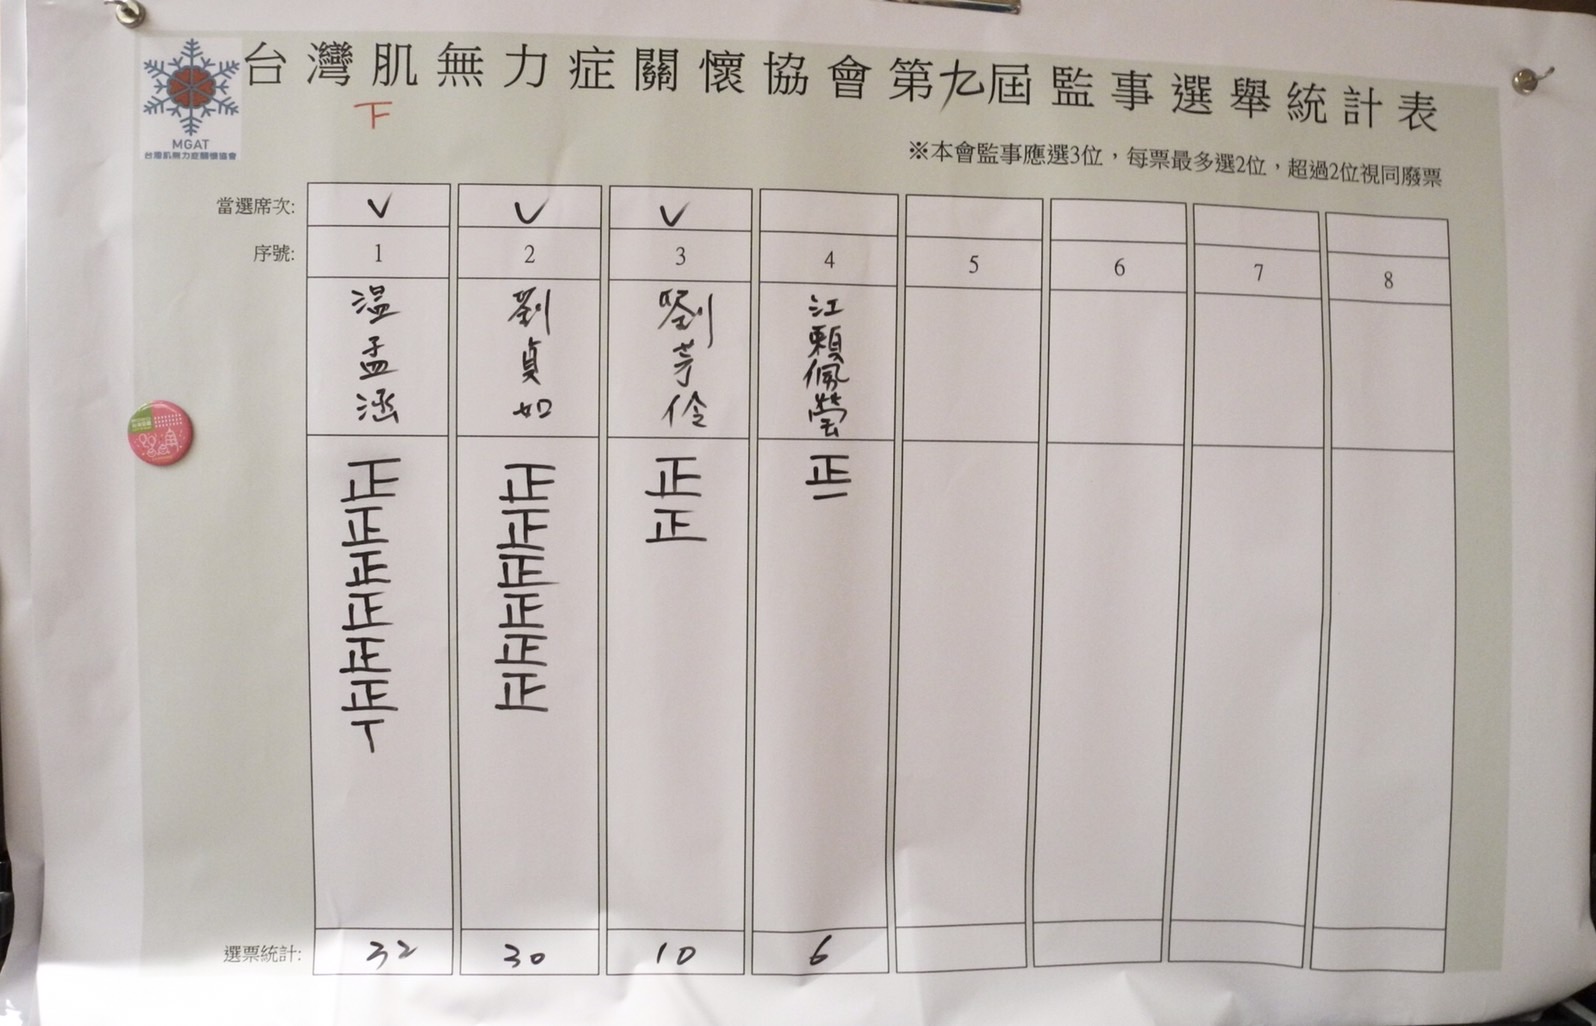 台灣肌無力症關懷協會第九屆監事選舉統計表
下
MGAT
台灣肌無力症關懷協會
※本會監事應選3位，每票最多選2位，超過2位視同廢票
當選席次: V V V
序號: 1 2 3 4 5 6 7 8
温孟涵 劉貞如 劉芋伶 江賴佩瑩
正 正 正 正一
正 正 正
正 正
正 正
正 正
正 正
丅
選票統計: 32 30 10 6